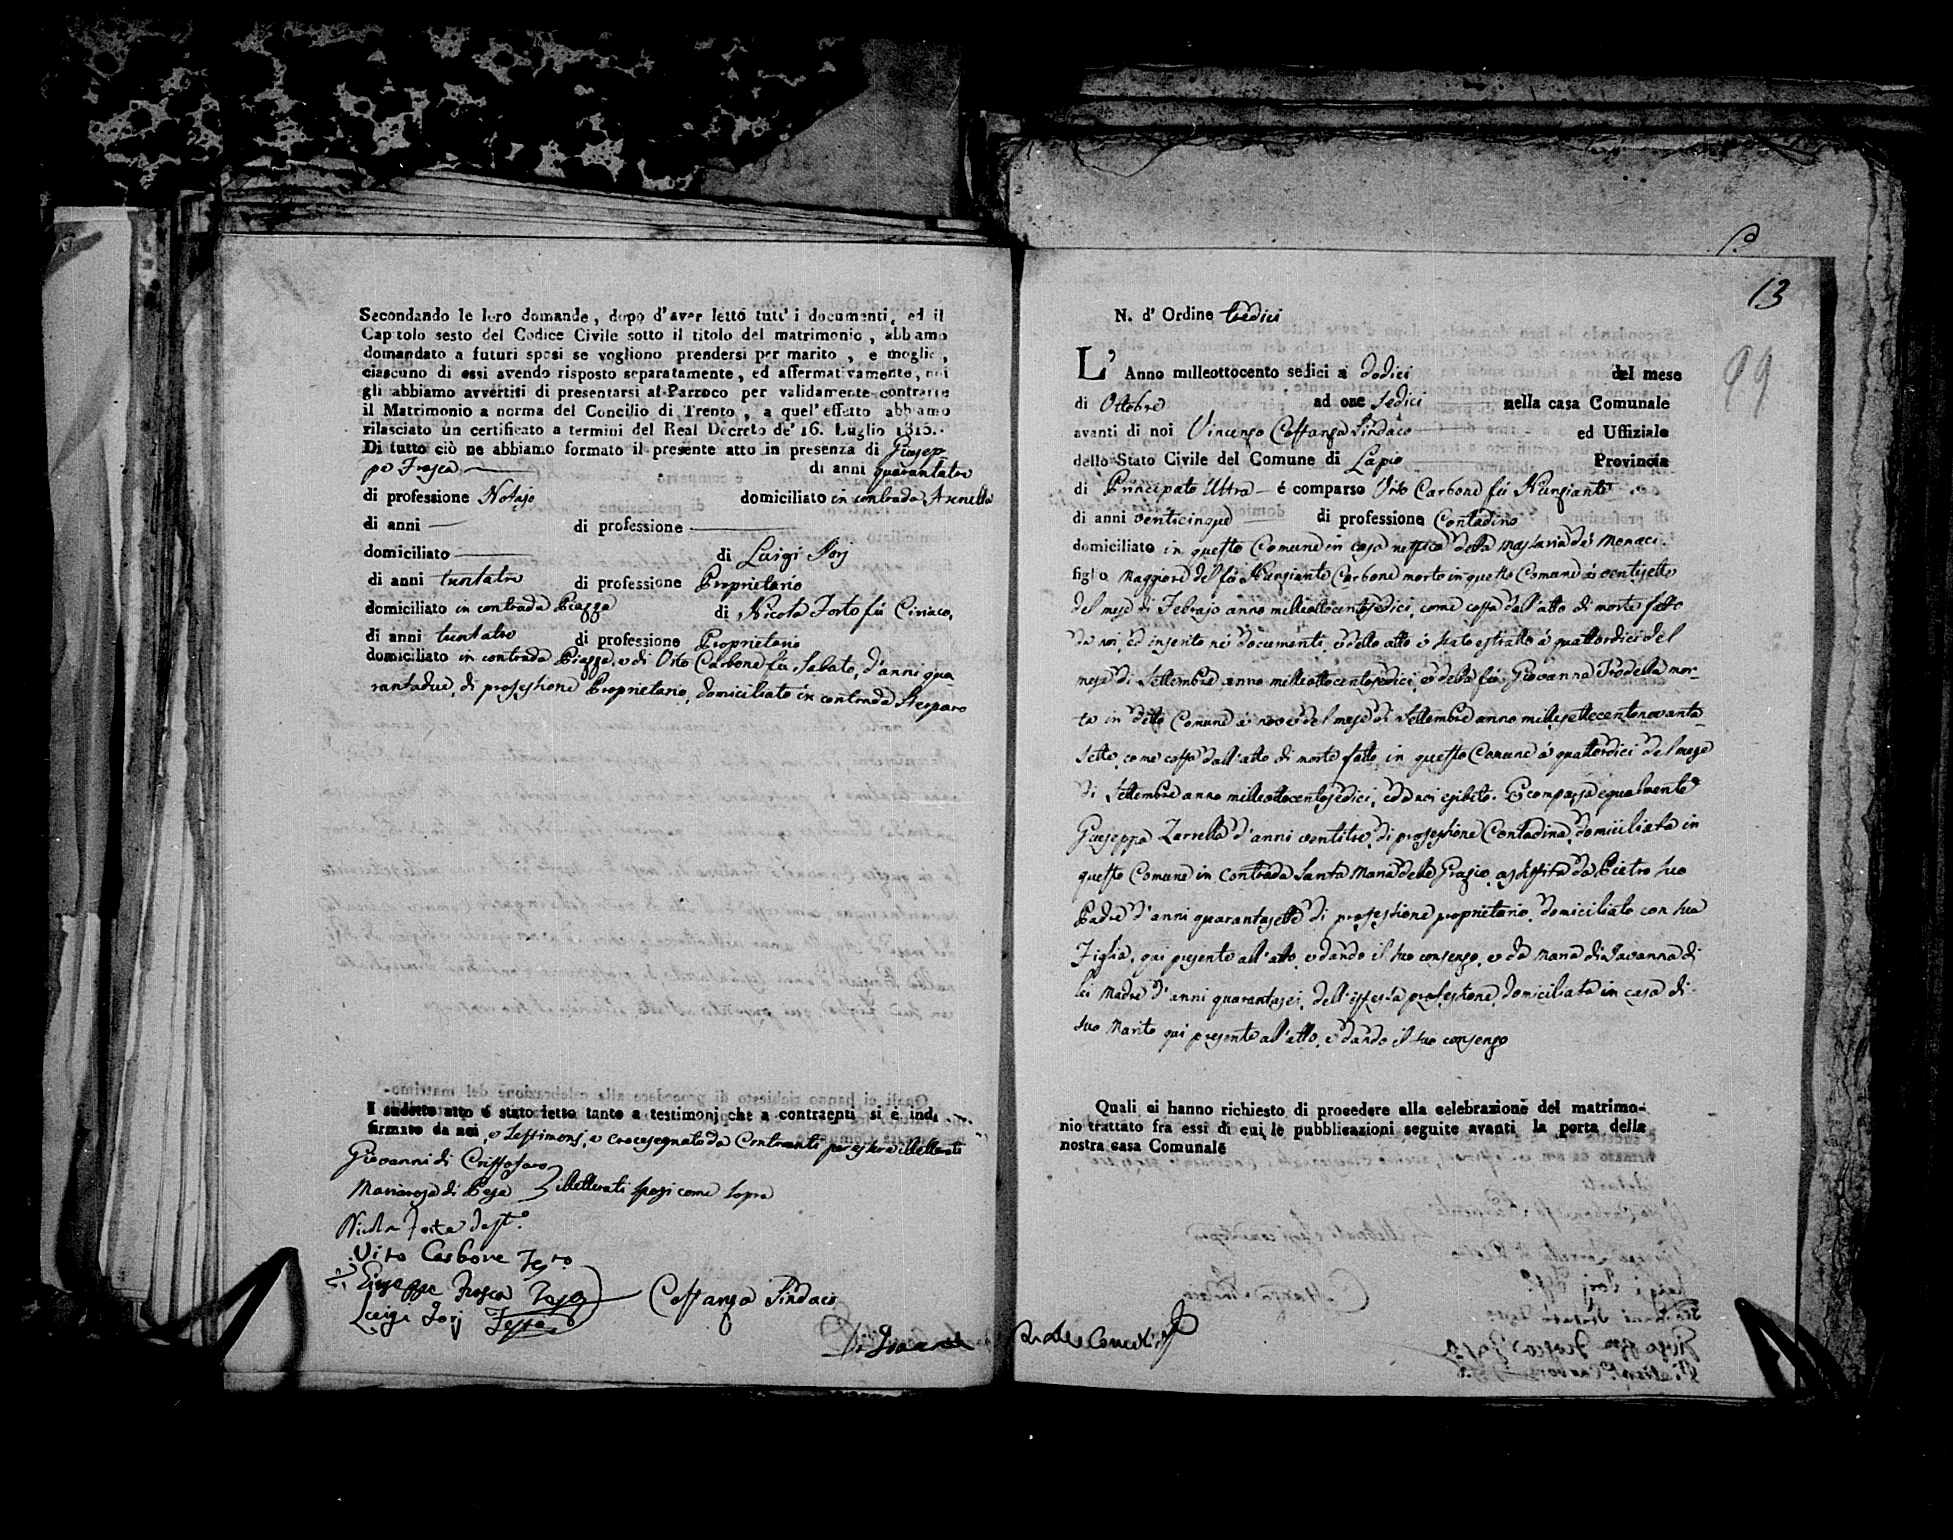 Secondando le loro domande, dopo d'aver letto tutt' i documenti, ed il
Capitolo sesto del Codice Civile sotto il titolo del matrimonio, abbiamo
domandato a futuri sposi se vogliono prendersi per marito, e moglie,
ciascuno di essi avendo risposto separatamente, ed affermativamente, noi
gli abbiamo avvertiti di presentarsi al Parroco per validamente contrarre
il Matrimonio a norma del Concilio di Trento, a quel' effetto abbiamo
rilasciato un certificato a termini del Real Decreto de' 16. Luglio 1815.
Di tutto ciò ne abbiamo formato il presente atto in presenza di Giusep-
pe Frasca di anni quarantatre
di professione Notajo domiciliato in contrada
di anni — di professione —
domiciliato — di Luigi Jorj
di anni trentatre di professione Proprietario
domiciliato in contrada Piazza di Nicola Forte fù Ciriaco,
di anni trentatre di professione Proprietario
domiciliato in contrada Piazza, e di Vito Carbone fù Sabato, d'anni qua
rantadue, di professione Proprietario, domiciliato in contrada
Il sudetto atto è stato letto tanto a testimonj che a contraenti si è indi
firmato da noi, e Testimonj, e crocesegnato da Contraenti per essere illetterati
Giovanni di Cristofaro
Mariarosa di Pesa illetterati sposi come sopra
Nicola Forte Test.º
Vito Carbone Tes.to
Giuseppe Frasca Teso
Luigi Jorj Testo
Costanza Sindaco
13
N. d' Ordine tredici
99
L' Anno milleottocento sedici a dodici del mese
di Ottobre ad ore sedici nella casa Comunale
avanti di noi Vincenzo Costanza Sindaco ed Uffiziale
dello Stato Civile del Comune di Lapio Provincia
di Principato Ultra è comparso Vito Carbone fù Nunziante
di anni venticinque di professione Contadino
domiciliato in questo Comune in casa nella Massaria de' Monaci
figlio maggiore del fù Nunziante Carbone morto in questo Comune à ventisette
del mese di Febrajo anno milleottocentosedici, come costa dall'atto di morte fatto
da noi, ed inserito nè documenti, e detto atto è stato estratto à quattordici del
mese di Settembre anno milleottocentosedici, e della fù Giovanna Trodella mor-
ta in detto Comune à nove del mese di Settembre anno millesettecentonovanta
sette, come costa dall'atto di morte fatto in questo Comune à quattordici del mese
di Settembre anno milleottocentosedici, ed à noi esibito. È comparsa egualmente
Giuseppa Zarrella d'anni ventitre, di professione Contadina, domiciliata in
questo Comune in contrada Santa Maria delle Grazie, assistita da Pietro suo
Padre d'anni quarantasette di professione proprietario, domiciliato con sua
Figlia, qui presente all'atto, e dando il suo consenso, e da Maria di Javanna di
lei Madre d'anni quarantasei, dell'istessa professione, domiciliata in casa di
suo Marito qui presente all'atto, e dando il suo consenso
Quali ci hanno richiesto di procedere alla celebrazione del matrimo-
nio trattato fra essi di cui le pubblicazioni seguite avanti la porta della
nostra casa Comunale